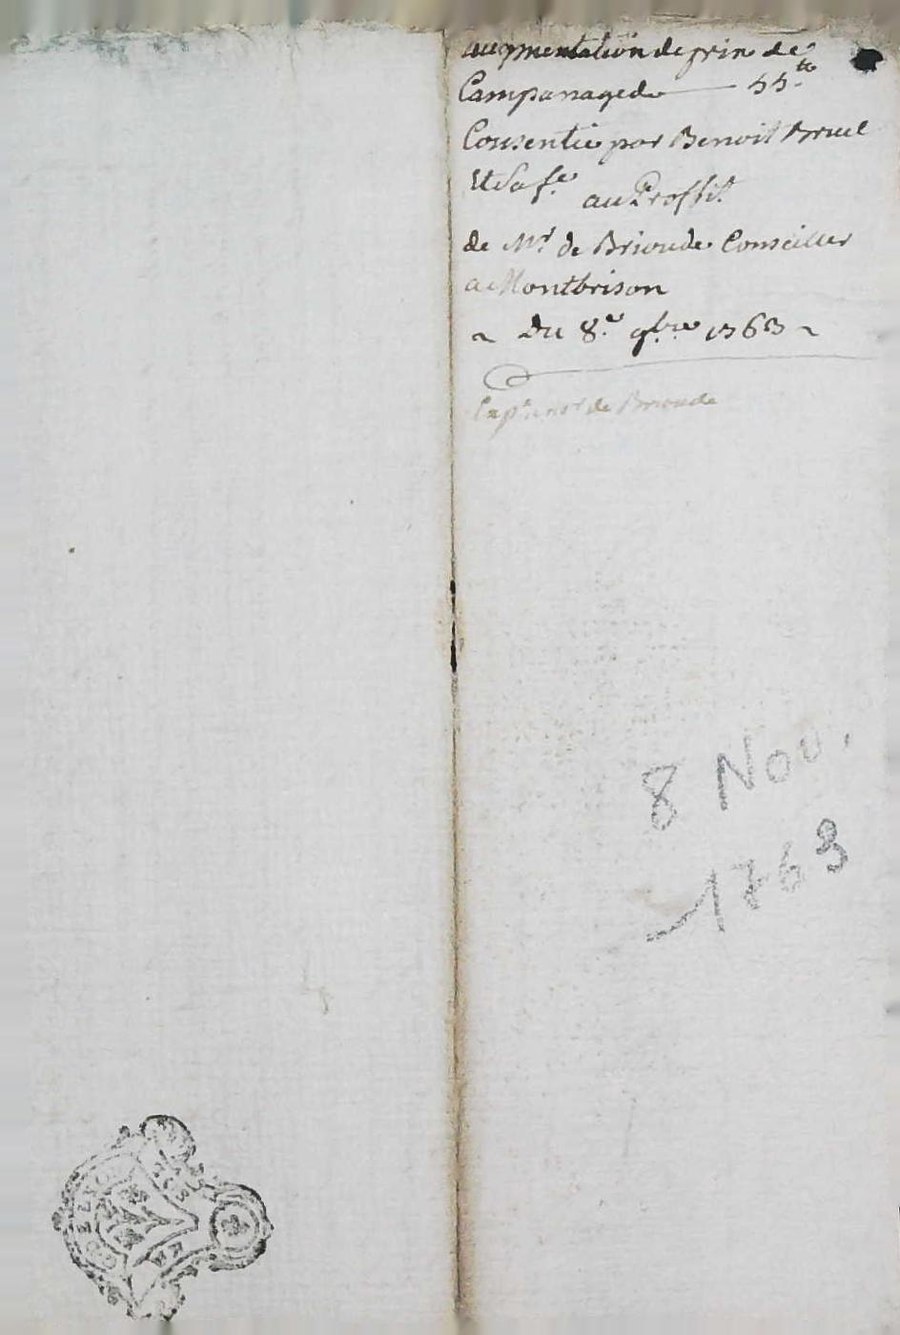 augmentation de prix de
Campanage de 55tt
Consentie par Benoit Bruel
Et Sa fe
au Proffit
de Mr de Brioude Conseiller
a Montbrison
~ Du 8e 9bre 1763 ~
de Brioude
8 Nov.
1763